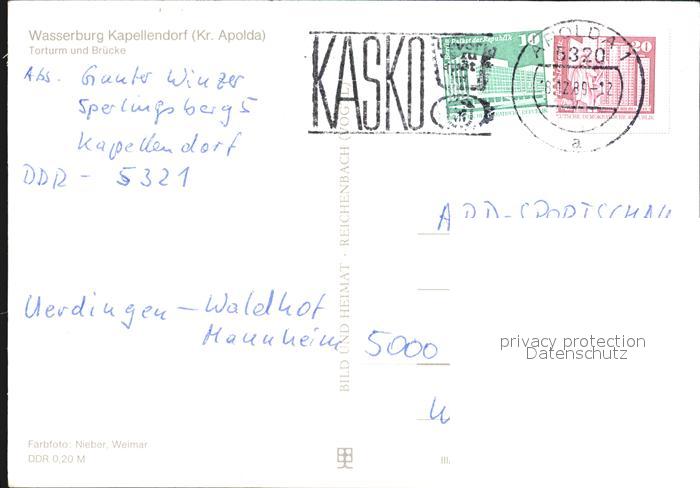 Wasserburg Kapellendorf (Kr. Apolda)
Torturm und Brücke
Abs. Gunter Winzer
Sperlingsberg 5
Kapellendorf
DDR - 5321
KASKO
Palast der Republik 10
20
DEUTSCHE DEMOKRATISCHE REPUBLIK
APOLDA 1
5320
12.89-12
a
ARD-SPORTSCHAU
Uerdingen - Waldhof
Mannheim
5000
BILD UND HEIMAT · REICHENBACH (VOGTL)
privacy protection
Datenschutz
Farbfoto: Nieber, Weimar
DDR 0,20 M
III